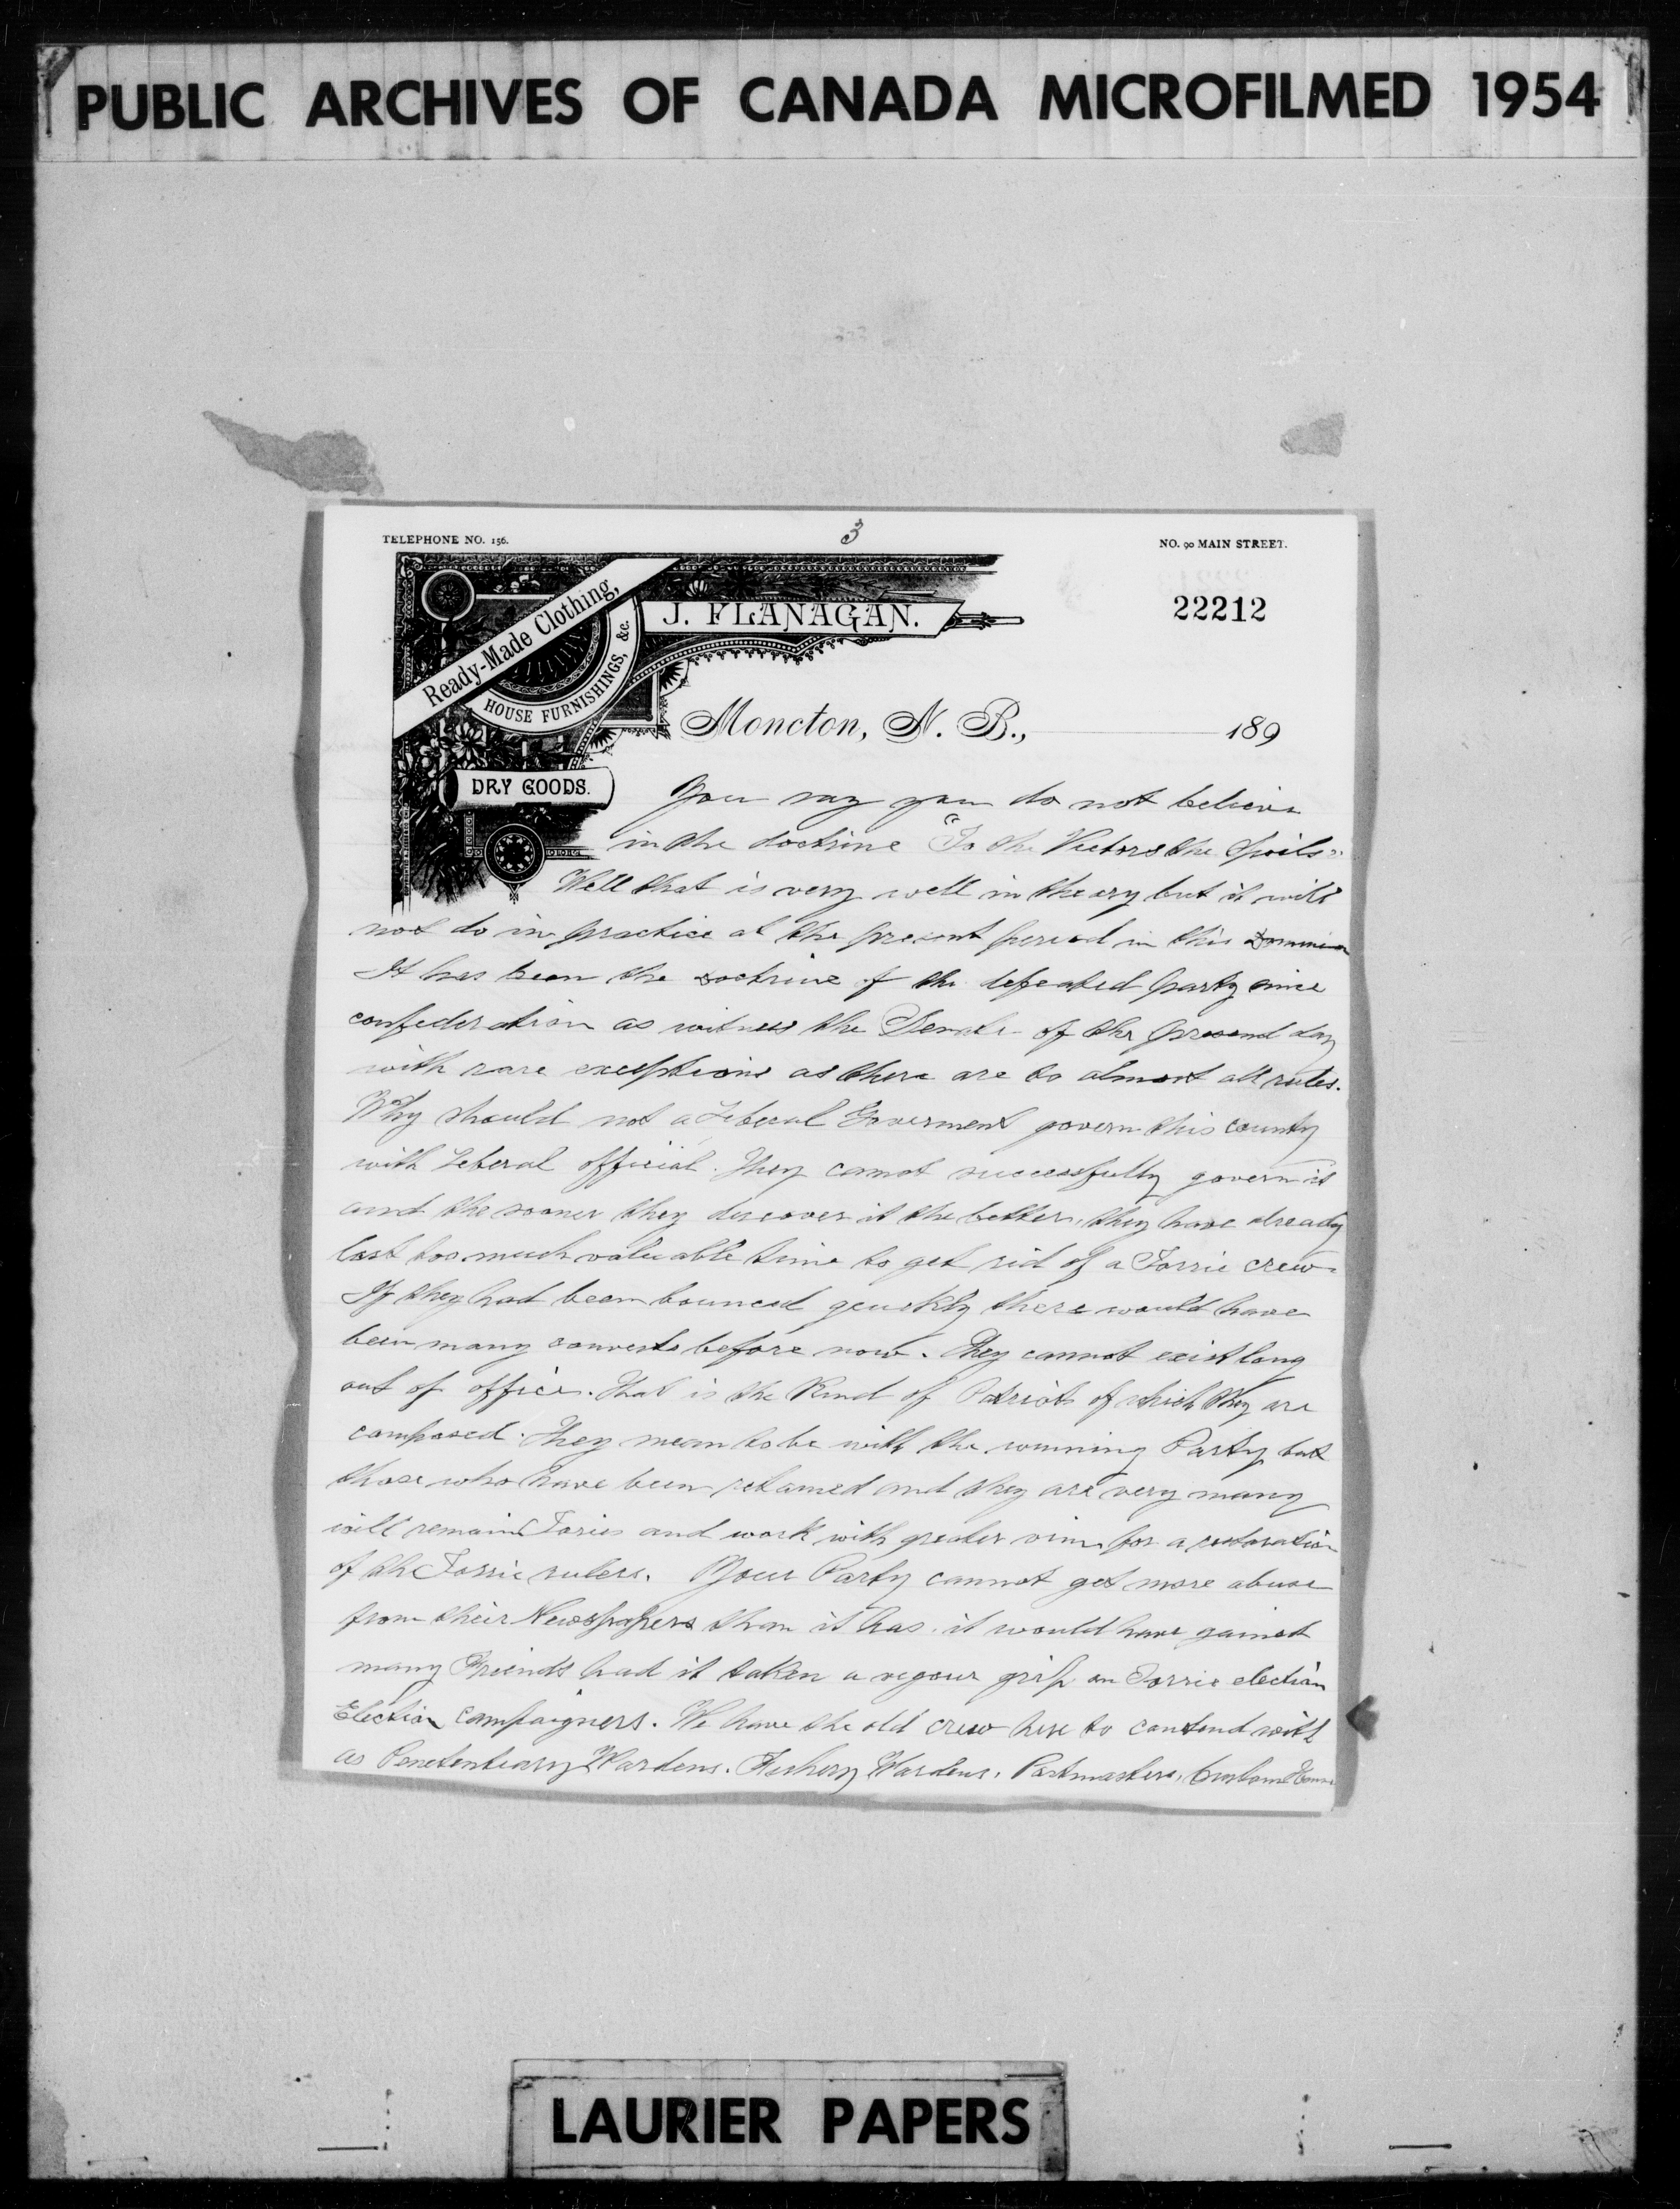 PUBLIC ARCHIVES OF CANADA MICROFILMED 1954
TELEPHONE NO. 156.
3
NO. 90 MAIN STREET.
22212
Ready-Made Clothing,
HOUSE FURNISHINGS, &c.
J. FLANAGAN.
Moncton, N. B., 189
DRY GOODS.
You say you do not believe
in the doctrine "To the Victors the Spoils"
Well that is very well in theory but it will
not do in practice at the present period in this Dominion
It has been the doctrine of the defeated party since
confederation as witness the Senate of the present day
with rare exceptions as there are to almost all rules.
Why should not a Leberal Goverment govern this county
with Leberal official. They cannot successfully govern it
and the sooner they discover it the better, they have already
lost too much valuable time to get rid of a Torrie crew.
If they had been bounced quickly there would have
been many converts before now. They cannot exist long
out of office. That is the Kind of Patriots of which they are
composed. They mean to be with the winning Party but
those who have been retained and they are very many
will remain Tories and work with greater vim for a restoration
of the Torrie rulers. Your Party cannot get more abuse
from their Newspapers than it has. it would have gained
many Friends had it taken a vigour grip on Torrie election
Election campaigners. We have the old crew here to contend with
as Penetentiary Wardens. Fishery Wardens, Postmasters, Custom House
LAURIER PAPERS